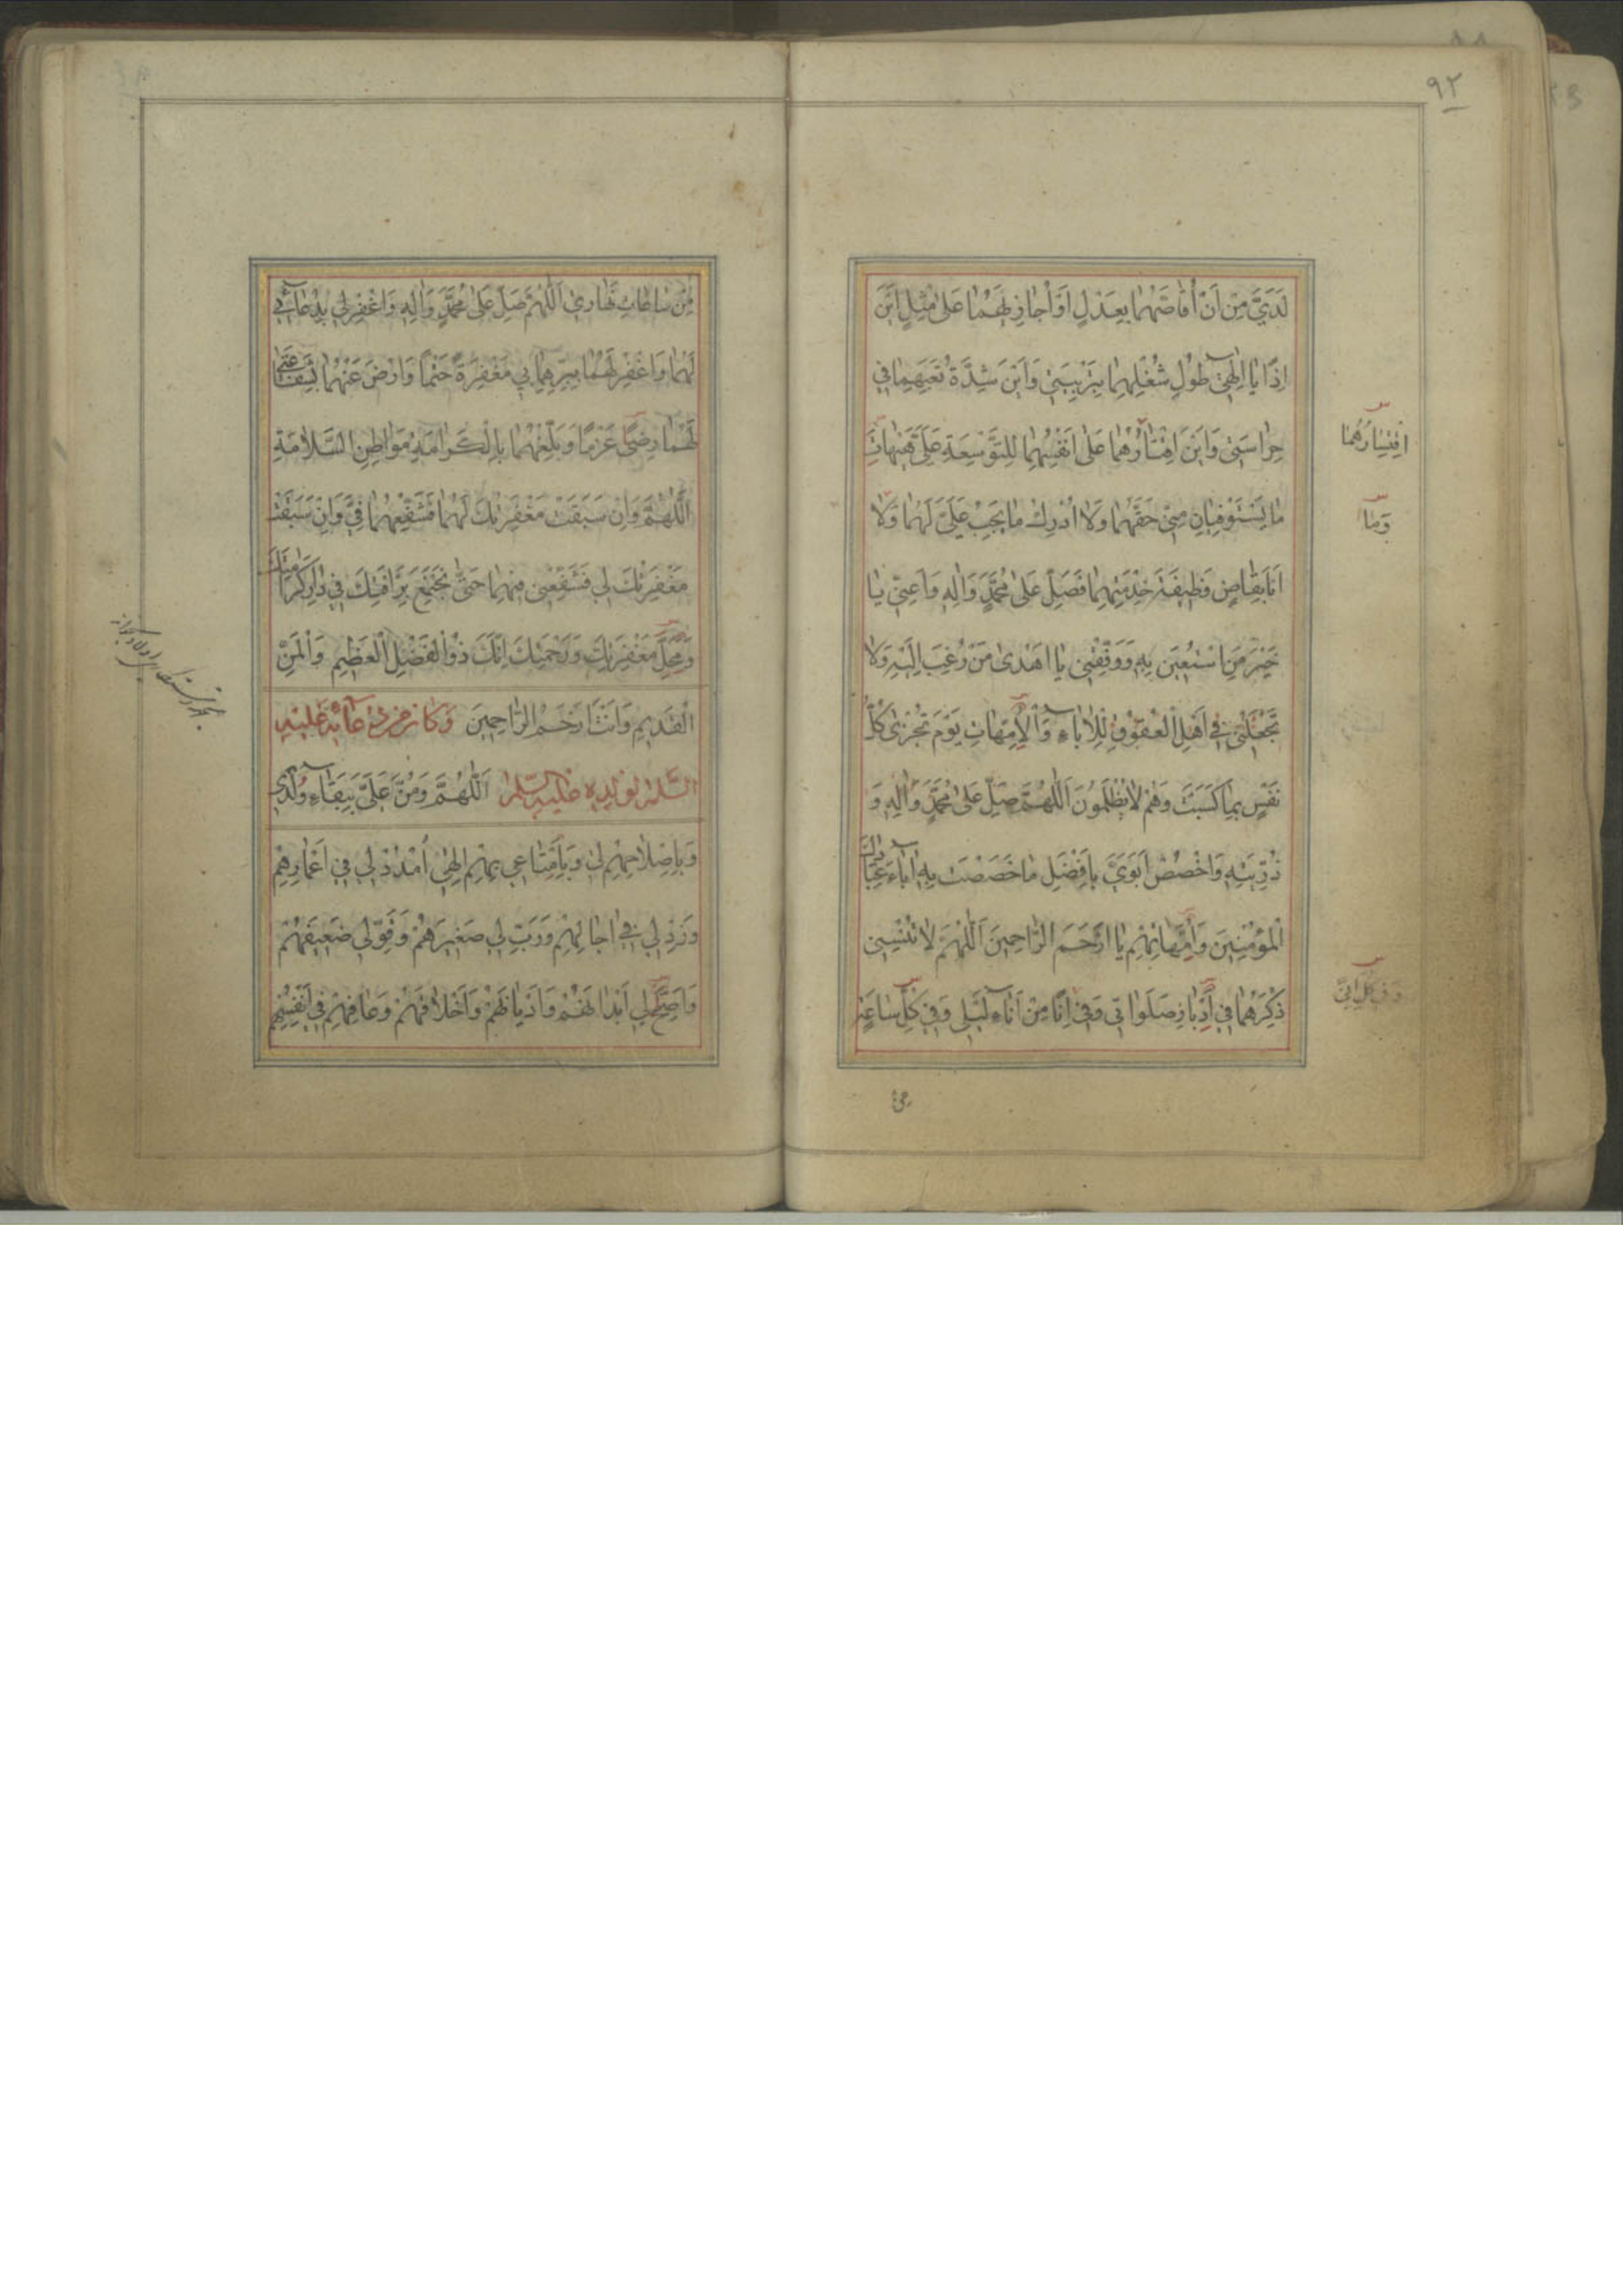 ٩٢
لَدَيَّ مِنْ اَنْ اُقٰاصَّهُمٰا بِعَدْلٍ اَوْ اُجٰازِيَهُمٰا عَلىٰ مِثْلٍ اَيْنَ
اِذًا يٰا اِلٰهىٓ طُولُ شُغْلِهِمٰا بِتَرْبِيَتىٖ وَاَيْنَ شِدَّةُ تَعَبِهِمٰا فىٖ
حِرٰاسَتىٖ وَاَيْنَ اِقْتٰارُهُمٰا عَلىٰ اَنْفُسِهِمٰا لِلتَّوْسِعَةِ عَلَيَّ هَيْهٰاتَ
مٰا يَسْتَوْفِيٰانِ مِنّىٖ حَقَّهُمٰا وَلٰا اُدْرِكُ مٰا يَجِبُ عَلَيَّ لَهُمٰا وَلٰا
اَنَا بِقٰاضٍ وَظيفَةَ خِدْمَتِهِمٰا فَصَلِّ عَلىٰ مُحَمَّدٍ وَاٰلِهِ وَاَعِنّىٖ يٰا
خَيْرَ مَنِ اسْتُعينَ بِهِ وَوَفِّقْنىٖ يٰا اَهْدىٰ مَنْ رُغِبَ اِلَيْهِ وَلٰا
تَجْعَلْنىٖ فىٖ اَهْلِ الْعُقُوقِ لِلْاٰبٰآءِ وَالْاُمَّهٰاتِ يَوْمَ تُجْزىٰ كُلُّ
نَفْسٍ بِمٰا كَسَبَتْ وَهُمْ لٰا يُظْلَمُونَ اَللّٰهُمَّ صَلِّ عَلىٰ مُحَمَّدٍ وَاٰلِهِ وَ
ذُرِّيَّتِهِ وَاخْصُصْ اَبَوَيَّ بِاَفْضَلِ مٰا خَصَصْتَ بِهِ اٰبٰآءَ عِبٰادِكَ
الْمُؤْمِنينَ وَاُمَّهٰاتِهِمْ يٰا اَرْحَمَ الرّٰاحِمينَ اَللّٰهُمَّ لٰا تُنْسِنىٖ
ذِكْرَهُمٰا فىٖ اَدْبٰارِ صَلَوٰاتىٖ وَفىٖ اِنًا مِنْ اٰنٰآءِ لَيْلىٖ وَفىٖ كُلِّ سٰاعَةٍ
وَمٰا
مِنْ سٰاعٰاتِ نَهٰارىٖ اَللّٰهُمَّ صَلِّ عَلىٰ مُحَمَّدٍ وَاٰلِهِ وَاغْفِرْ لىٖ بِدُعٰآئىٖ
لَهُمٰا وَاغْفِرْ لَهُمٰا بِبِرِّهِمٰا بىٖ مَغْفِرَةً حَتْمًا وَارْضَ عَنْهُمٰا بِشَفٰاعَتىٖ
لَهُمٰا رِضًى عَزْمًا وَبَلِّغْهُمٰا بِالْكَرٰامَةِ مَوٰاطِنَ السَّلٰامَةِ
اَللّٰهُمَّ وَاِنْ سَبَقَتْ مَغْفِرَتُكَ لَهُمٰا فَشَفِّعْهُمٰا فِيَّ وَاِنْ سَبَقَتْ
مَغْفِرَتُكَ لىٖ فَشَفِّعْنىٖ فيهِمٰا حَتّىٰ نَجْتَمِعَ بِرَاْفَتِكَ فىٖ دٰارِ كَرٰامَتِكَ
وَمَحَلِّ مَغْفِرَتِكَ وَرَحْمَتِكَ اِنَّكَ ذُو الْفَضْلِ الْعَظيمِ وَالْمَنِّ
الْقَديمِ وَاَنْتَ اَرْحَمُ الرّٰاحِمينَ وَكَانَ مِنْ دُعٰآئِهِ عَلَيْهِ
السَّلٰامُ لِوُلْدِهِ عَلَيْهِ السَّلٰام اَللّٰهُمَّ وَمُنَّ عَلَيَّ بِبَقٰآءِ وُلْدىٖ
وَبِاِصْلٰاحِهِمْ لىٖ وَبِاِمْتٰاعىٖ بِهِمْ اِلٰهىٖ اُمْدُدْ لىٖ فىٖ اَعْمٰارِهِمْ
وَزِدْ لىٖ فىٖ اٰجٰالِهِمْ وَرَبِّ لىٖ صَغيرَهُمْ وَقَوِّ لىٖ ضَعيفَهُمْ
وَاَصِحَّ لىٖ اَبْدٰانَهُمْ وَاَدْيٰانَهُمْ وَاَخْلٰاقَهُمْ وَعٰافِهِمْ فىٖ اَنْفُسِهِمْ